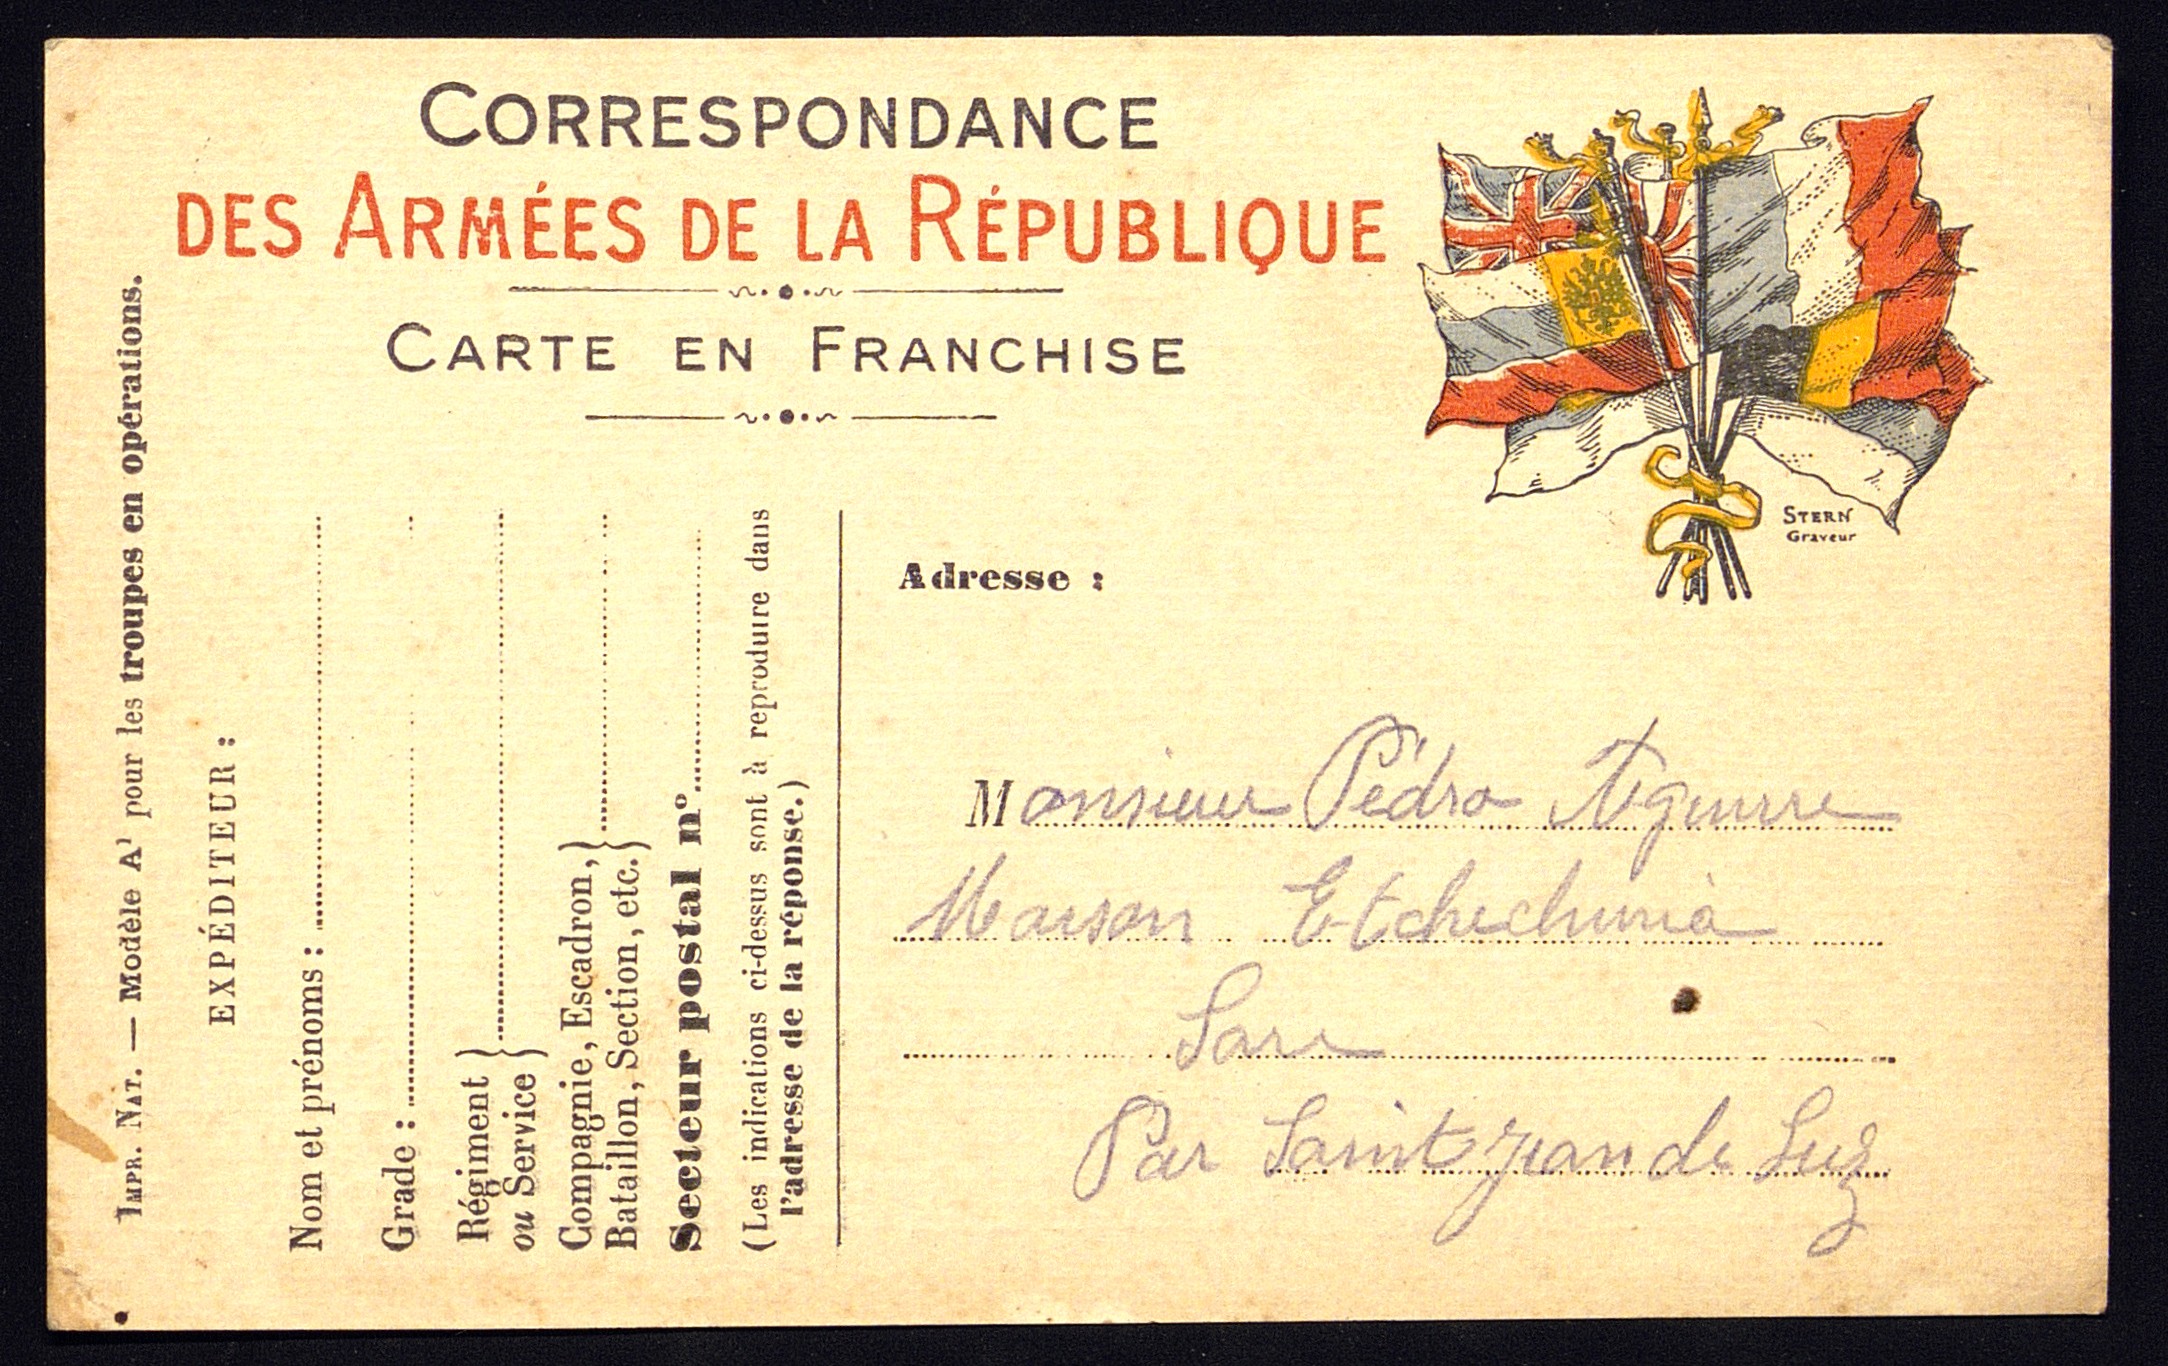 CORRESPONDANCE
DES ARMÉES DE LA RÉPUBLIQUE
CARTE EN FRANCHISE
STERN
Graveur
IMPR. NAT. — Modèle A¹ pour les troupes en opérations.
EXPÉDITEUR :
Nom et prénoms :
Grade :
Régiment
ou Service }
Compagnie, Escadron, }
Bataillon, Section, etc.
Secteur postal n°
(Les indications ci-dessus sont à reproduire dans
l'adresse de la réponse.)
Adresse :
Monsieur Pédro Aguirre
Maison
Sare
Par Saint Jean de Luz